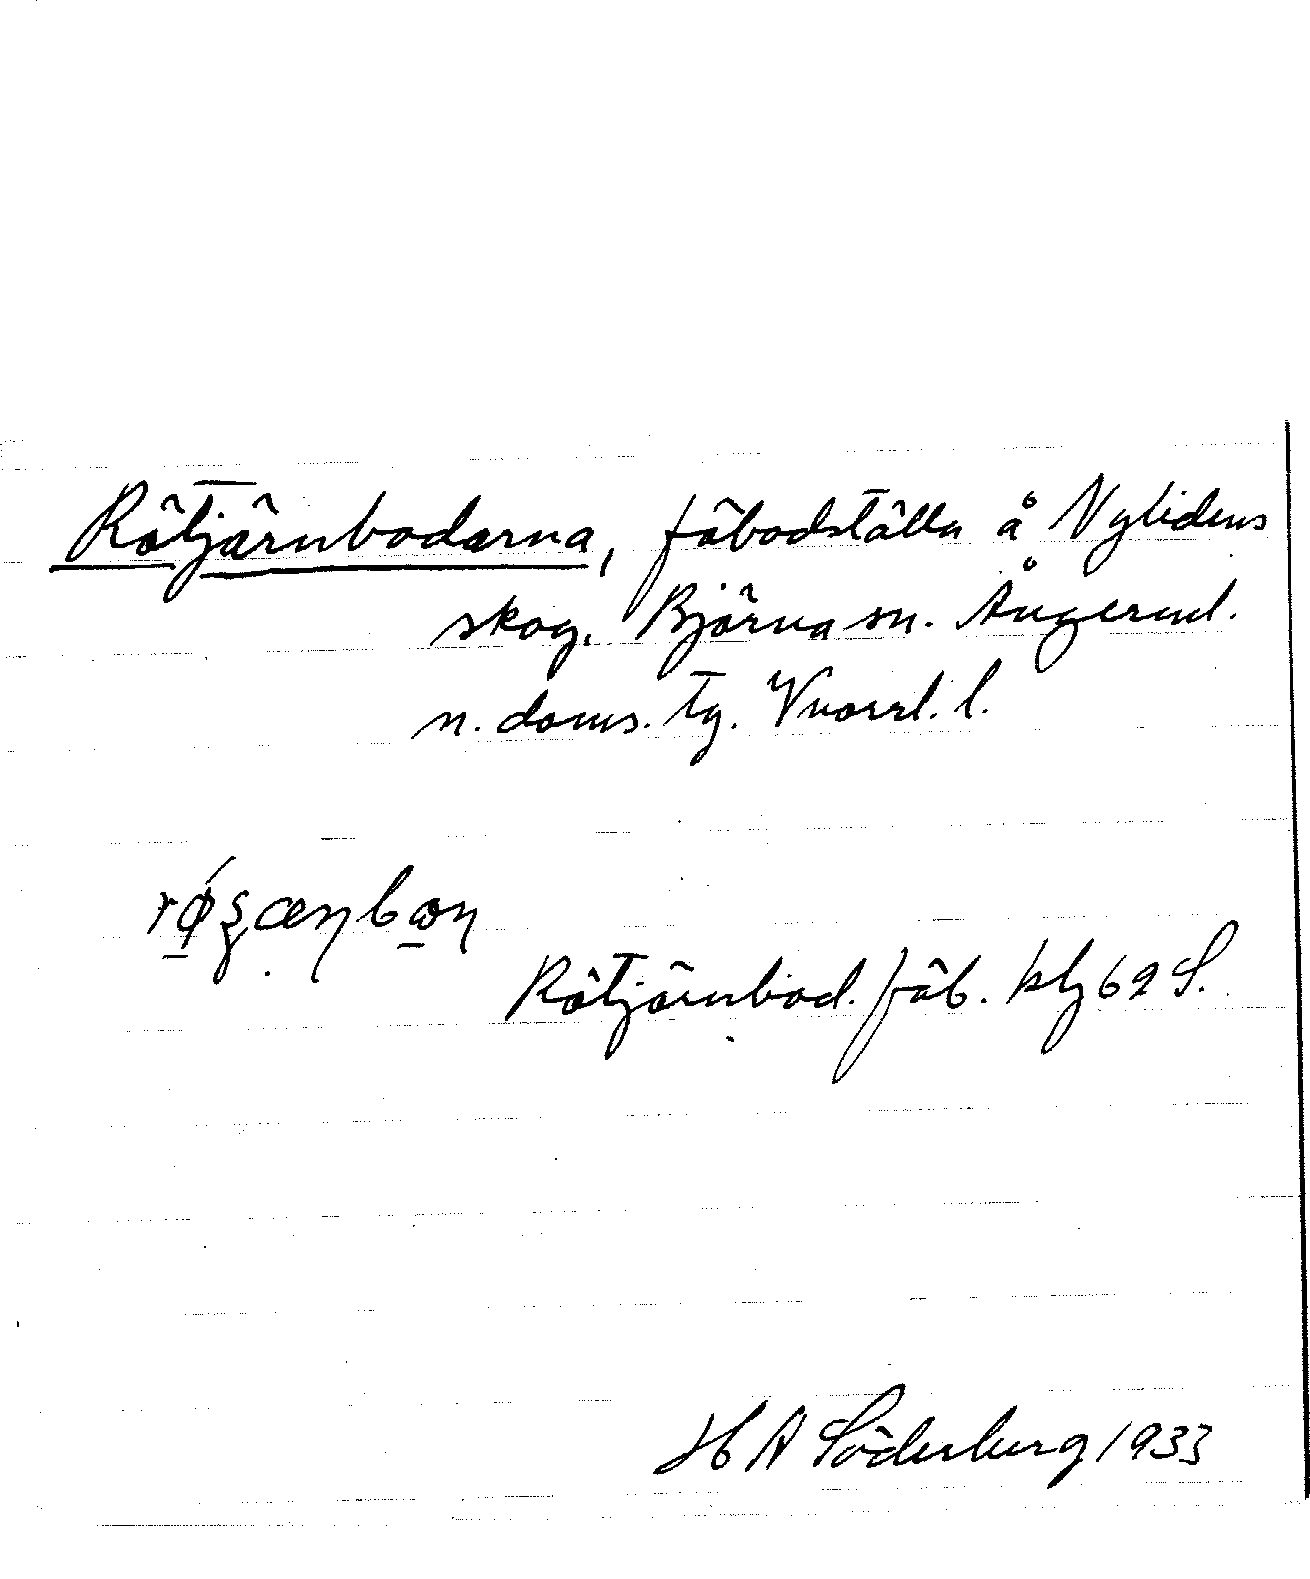 Rötjärnbodarna, fäbodställe å Nylidens
skog. Björna sn. Ångerml.
n. doms. tg. Vnorrl. l.
Rötjärnbod. fäb. klg 62 S.
H A Söderberg 1933